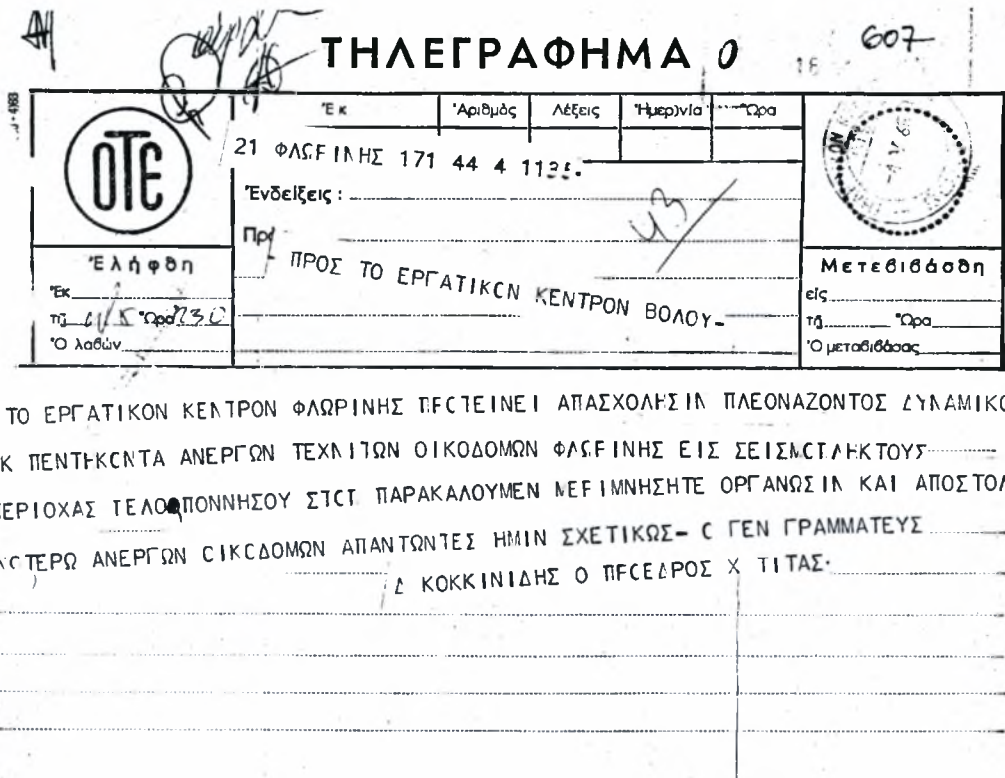 607
ΤΗΛΕΓΡΑΦΗΜΑ Ο
ΟΤΕ
Ἐκ Ἀριθμὸς Λέξεις Ἡμερ)νία Ὥρα
21 ΦΛΩΡΙΝΗΣ 171 44 4 1135.
Ἐνδείξεις :
43
ΠΡΟΣ ΤΟ ΕΡΓΑΤΙΚΟΝ ΚΕΝΤΡΟΝ ΒΟΛΟΥ-
Ἐλήφθη
Ἐκ
τῇ Ὥρα 1230
Ὁ λαβών
Μετεβιβάσθη
εἰς
τῇ Ὥρα
Ὁ μεταβιβάσας
ΤΟ ΕΡΓΑΤΙΚΟΝ ΚΕΝΤΡΟΝ ΦΛΩΡΙΝΗΣ ΠΡΟΤΕΙΝΕΙ ΑΠΑΣΧΟΛΗΣΙΝ ΠΛΕΟΝΑΖΟΝΤΟΣ ΔΥΝΑΜΙΚΟ
Κ ΠΕΝΤΗΚΟΝΤΑ ΑΝΕΡΓΩΝ ΤΕΧΝΙΤΩΝ ΟΙΚΟΔΟΜΩΝ ΦΛΩΡΙΝΗΣ ΕΙΣ ΣΕΙΣΜΟΠΛΗΚΤΟΥΣ
ΕΡΙΟΧΑΣ ΠΕΛΟΠΟΝΝΗΣΟΥ ΣΤΟΠ ΠΑΡΑΚΑΛΟΥΜΕΝ ΜΕΡΙΜΝΗΣΗΤΕ ΟΡΓΑΝΩΣΙΝ ΚΑΙ ΑΠΟΣΤΟΛ
ΤΕΡΩ ΑΝΕΡΓΩΝ ΟΙΚΟΔΟΜΩΝ ΑΠΑΝΤΩΝΤΕΣ ΗΜΙΝ ΣΧΕΤΙΚΩΣ- Ο ΓΕΝ ΓΡΑΜΜΑΤΕΥΣ
Δ ΚΟΚΚΙΝΙΔΗΣ Ο ΠΡΟΕΔΡΟΣ Χ ΤΙΤΑΣ.